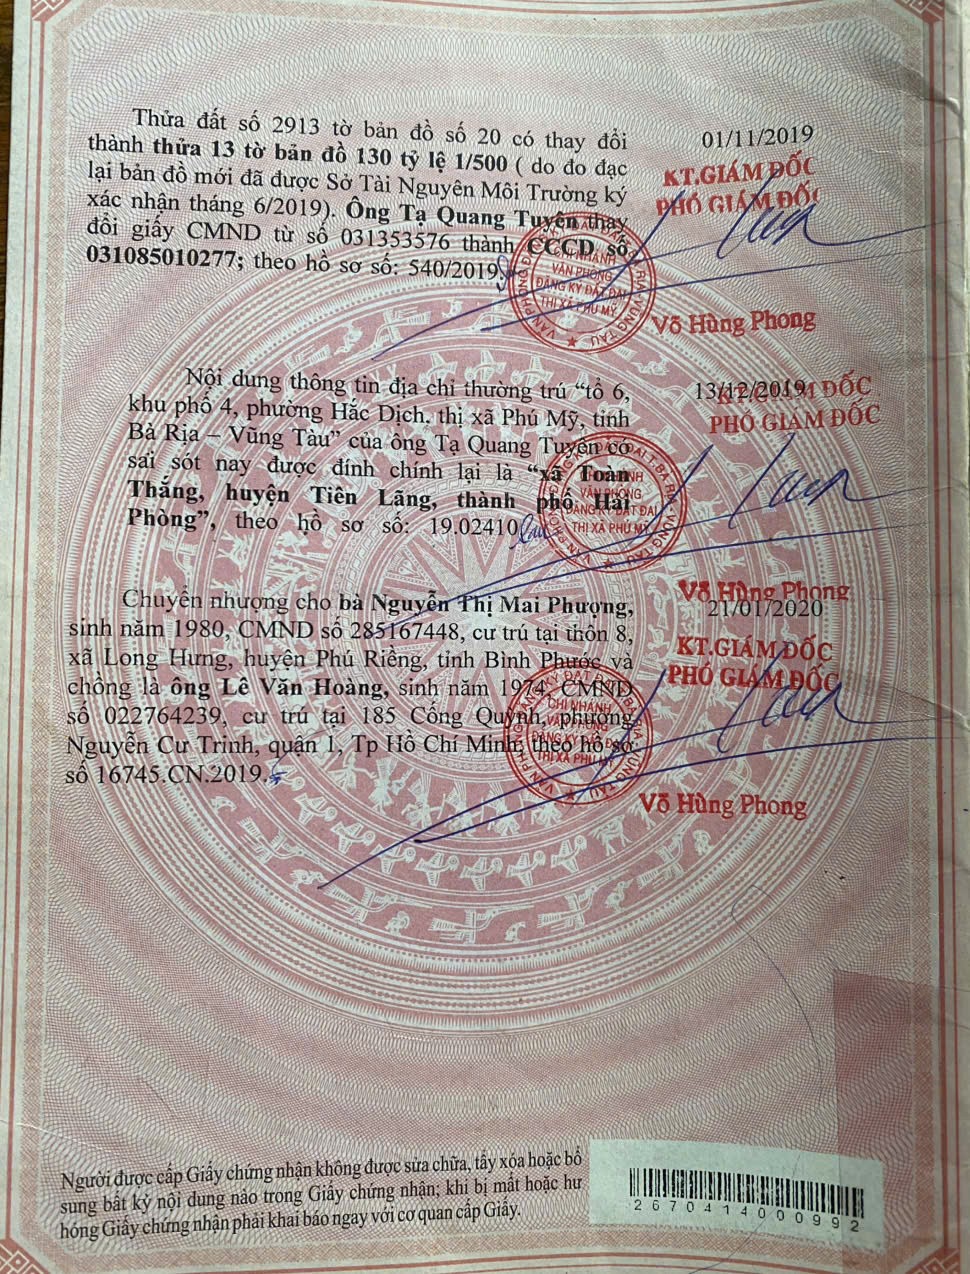 Thửa đất số 2913 tờ bản đồ số 20 có thay đổi
thành thửa 13 tờ bản đồ 130 tỷ lệ 1/500 ( do đo đạc
lại bản đồ mới đã được Sở Tài Nguyên Môi Trường ký
xác nhận tháng 6/2019). Ông Tạ Quang Tuyên thay
đổi giấy CMND từ số 031353576 thành CCCD số
031085010277; theo hồ sơ số: 540/2019.
01/11/2019
KT.GIÁM ĐỐC
PHÓ GIÁM ĐỐC
CHI NHÁNH
VĂN PHÒNG
ĐĂNG KÝ ĐẤT ĐAI
THỊ XÃ PHÚ MỸ
Võ Hùng Phong
Nội dung thông tin địa chỉ thường trú “tổ 6,
khu phố 4, phường Hắc Dịch, thị xã Phú Mỹ, tỉnh
Bà Rịa – Vũng Tàu” của ông Tạ Quang Tuyên có
sai sót nay được đính chính lại là “xã Toàn
Thắng, huyện Tiên Lãng, thành phố Hải
Phòng”, theo hồ sơ số: 19.02410
13/12/2019
KT.GIÁM ĐỐC
PHÓ GIÁM ĐỐC
CHI NHÁNH
VĂN PHÒNG
ĐĂNG KÝ ĐẤT ĐAI
THỊ XÃ PHÚ MỸ
Võ Hùng Phong
Chuyển nhượng cho bà Nguyễn Thị Mai Phượng,
sinh năm 1980, CMND số 285167448, cư trú tại thôn 8,
xã Long Hưng, huyện Phú Riềng, tỉnh Bình Phước và
chồng là ông Lê Văn Hoàng, sinh năm 1974, CMND
số 022764239, cư trú tại 185 Cống Quỳnh, phường
Nguyễn Cư Trinh, quận 1, Tp Hồ Chí Minh; theo hồ sơ
số 16745.CN.2019.
21/01/2020
KT.GIÁM ĐỐC
PHÓ GIÁM ĐỐC
CHI NHÁNH
VĂN PHÒNG
ĐĂNG KÝ ĐẤT ĐAI
THỊ XÃ PHÚ MỸ
Võ Hùng Phong
Người được cấp Giấy chứng nhận không được sửa chữa, tẩy xóa hoặc bổ
sung bất kỳ nội dung nào trong Giấy chứng nhận; khi bị mất hoặc hư
hỏng Giấy chứng nhận phải khai báo ngay với cơ quan cấp Giấy.
267041400​0992